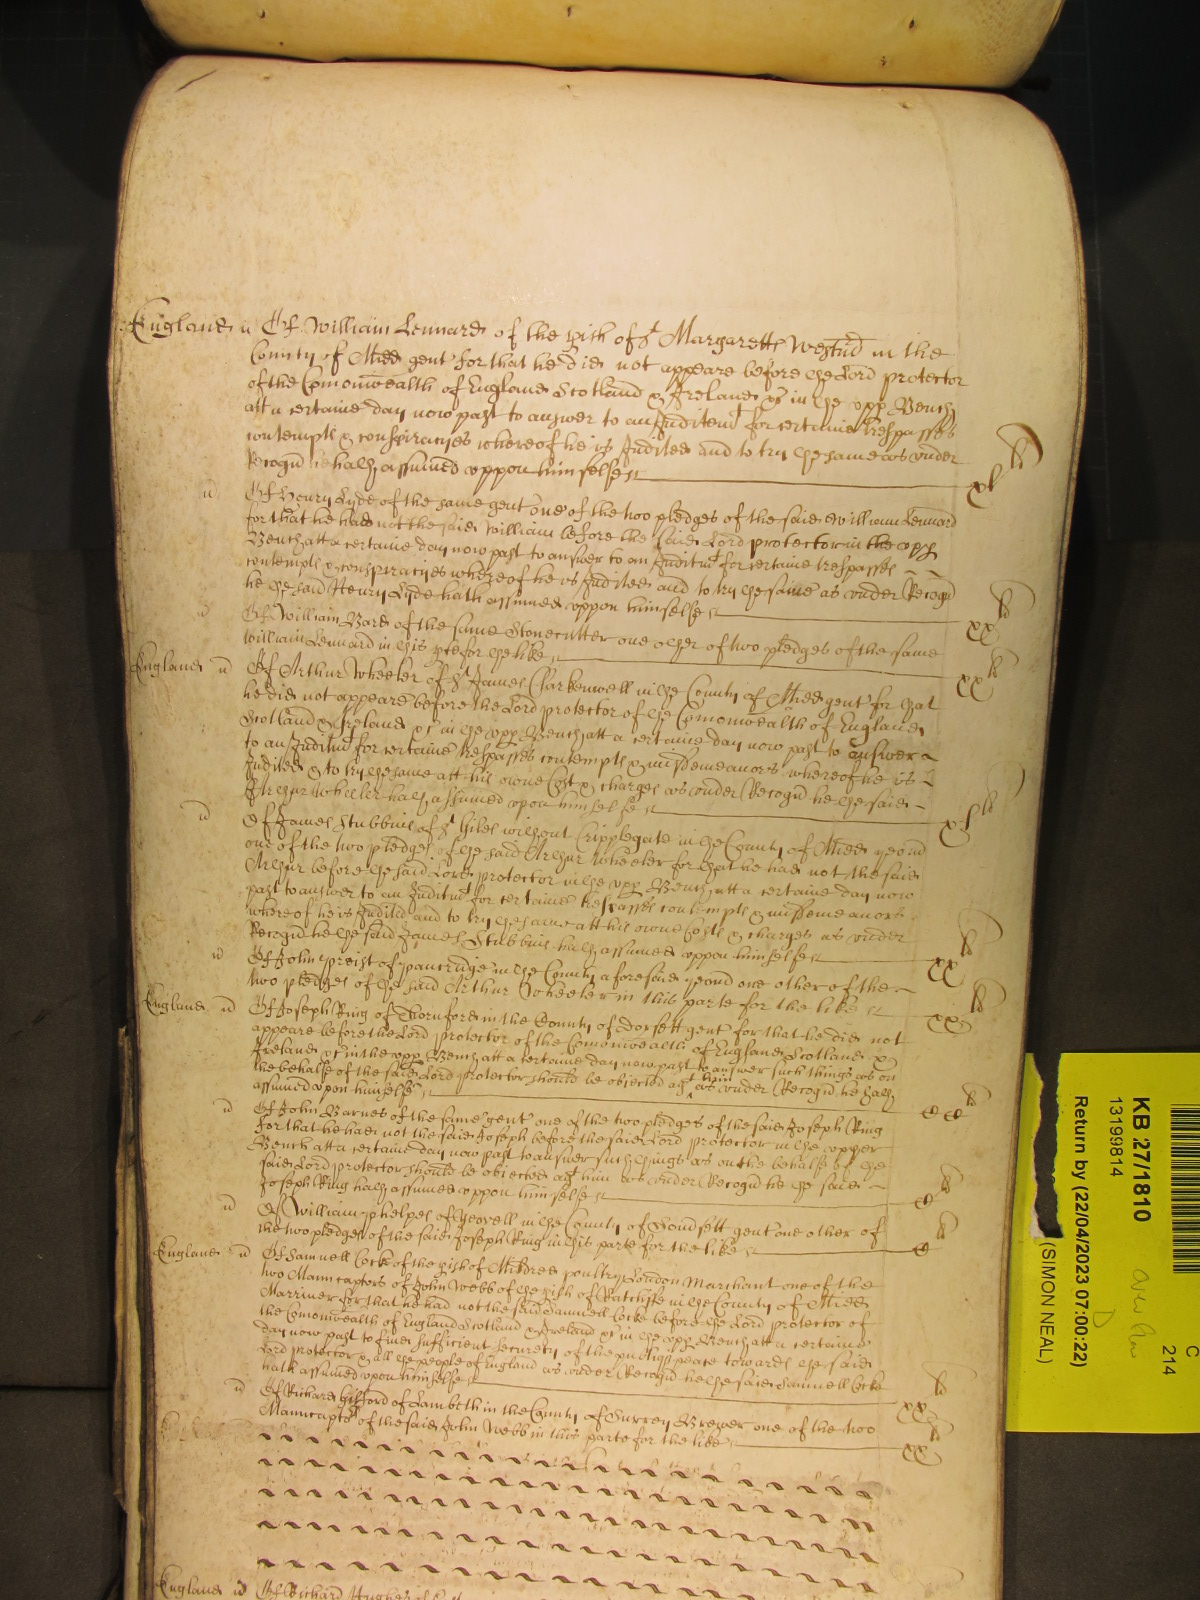 England ss Of William Lennard of the pish of St Margaretts Westmr in the
County of Midd gent for that he did not appeare before the Lord protector
of the Comonwealth of England Scotland & Ireland &c in the upp Bench
att a certaine day now past to answer to an Inditemt for certaine trespasses
contempts & conspiracyes whereof he is Indited and to try the same as under
Recogn he hath assumed uppon himselfe xl li
id Of Henry Lyde of the same gent one of the two pledges of the said William Lennard
for that he had not the said William before the said Lord protector in the upp
Bench att a certaine day now past to answer to an Inditmt for certaine trespasses
contempts & conspiracyes whereof he is Indited and to try the same as under Recogn
he the said Henry Lyde hath assumed uppon himselfe xx li
id Of William Bard of the same Stonecutter one other of two pledges of the same
William Lennard in this pte for the like xx li
England id Of Arthur Wheeler of St James Clarkenwell in the County of Midd gent for that
he did not appeare before the Lord protector of the Comonwealth of England
Scotland & Ireland &c in the upp Bench att a certaine day now past to answer
to an Inditmt for certaine trespasses contempts & misdemeanors whereof he is
Indited & to try the same att his owne Cost & charges as under Recogn he the said
Arthur Wheeler hath assumed upon himselfe xl li
id Of James Stubbins of St Giles without Cripplegate in the County of Midd yeom
one of the two pledges of the said Arthur Wheeler for that he had not the said
Arthur before the said Lord protector in the upp Bench att a certaine day now
past to answer to an Inditmt for certaine trespasses contempts & misdemeanors
whereof he is Indited and to try the same att his owne Costs & charges as under
Recogn he the said James Stubbins hath assumed uppon himselfe xx li
id Of John preist of pancridge in the County aforesaid yeom one other of the
two pledges of the said Arthur Wheeler in this parte for the like xx li
England id Of Joseph Ring of Thornford in the County of Dorsett gent for that he did not
appeare before the Lord protector of the Comonwealth of England Scotland &
Ireland &c in the upp Bench att a certaine day now past to answer such things as on
the behalfe of the said Lord protector should be objected agt him as under Recogn he hath
assumed upon himselfe
id Of John Barnes of the same gent one of the two pledges of the said Joseph Ring
for that he had not the said Joseph before the said Lord protector in the upper
Bench att a certaine day now past to answer such things as on the behalfe of the
said Lord protector should be objected agt him as under Recogn he the said
Joseph Ring hath assumed uppon himselfe
id Of William phelpes of Yeovell in the County of Somsett gent one other of
the two pledges of the said Joseph Ring in this parte for the like
England id Of Samuell Cocke of the pish of Mildred poultry London Marchant one of the
two Manucaptors of John Webb of the pish of Ratcliffe in the County of Midd
Marriner for that he had not the said Samuell Cocke before the Lord protector of
the Comonwealth of England Scotland & Ireland &c in the upp Bench att a certaine
day now past to find sufficient security of the publique peace towards the said
Lord protector & all the people of England as under Recogn he the said Samuell Cocke
hath assumed upon himselfe xx li
id Of Richard Gifford of Lambeth in the County of Surrey Brewer one of the two
Manucaptors of the said John Webb in this parte for the like xx li
England id Of Richard Hughes of
KB 27/1810
13199814
Return by (22/04/2023 07:00:22)
(SIMON NEAL)
C
214
D